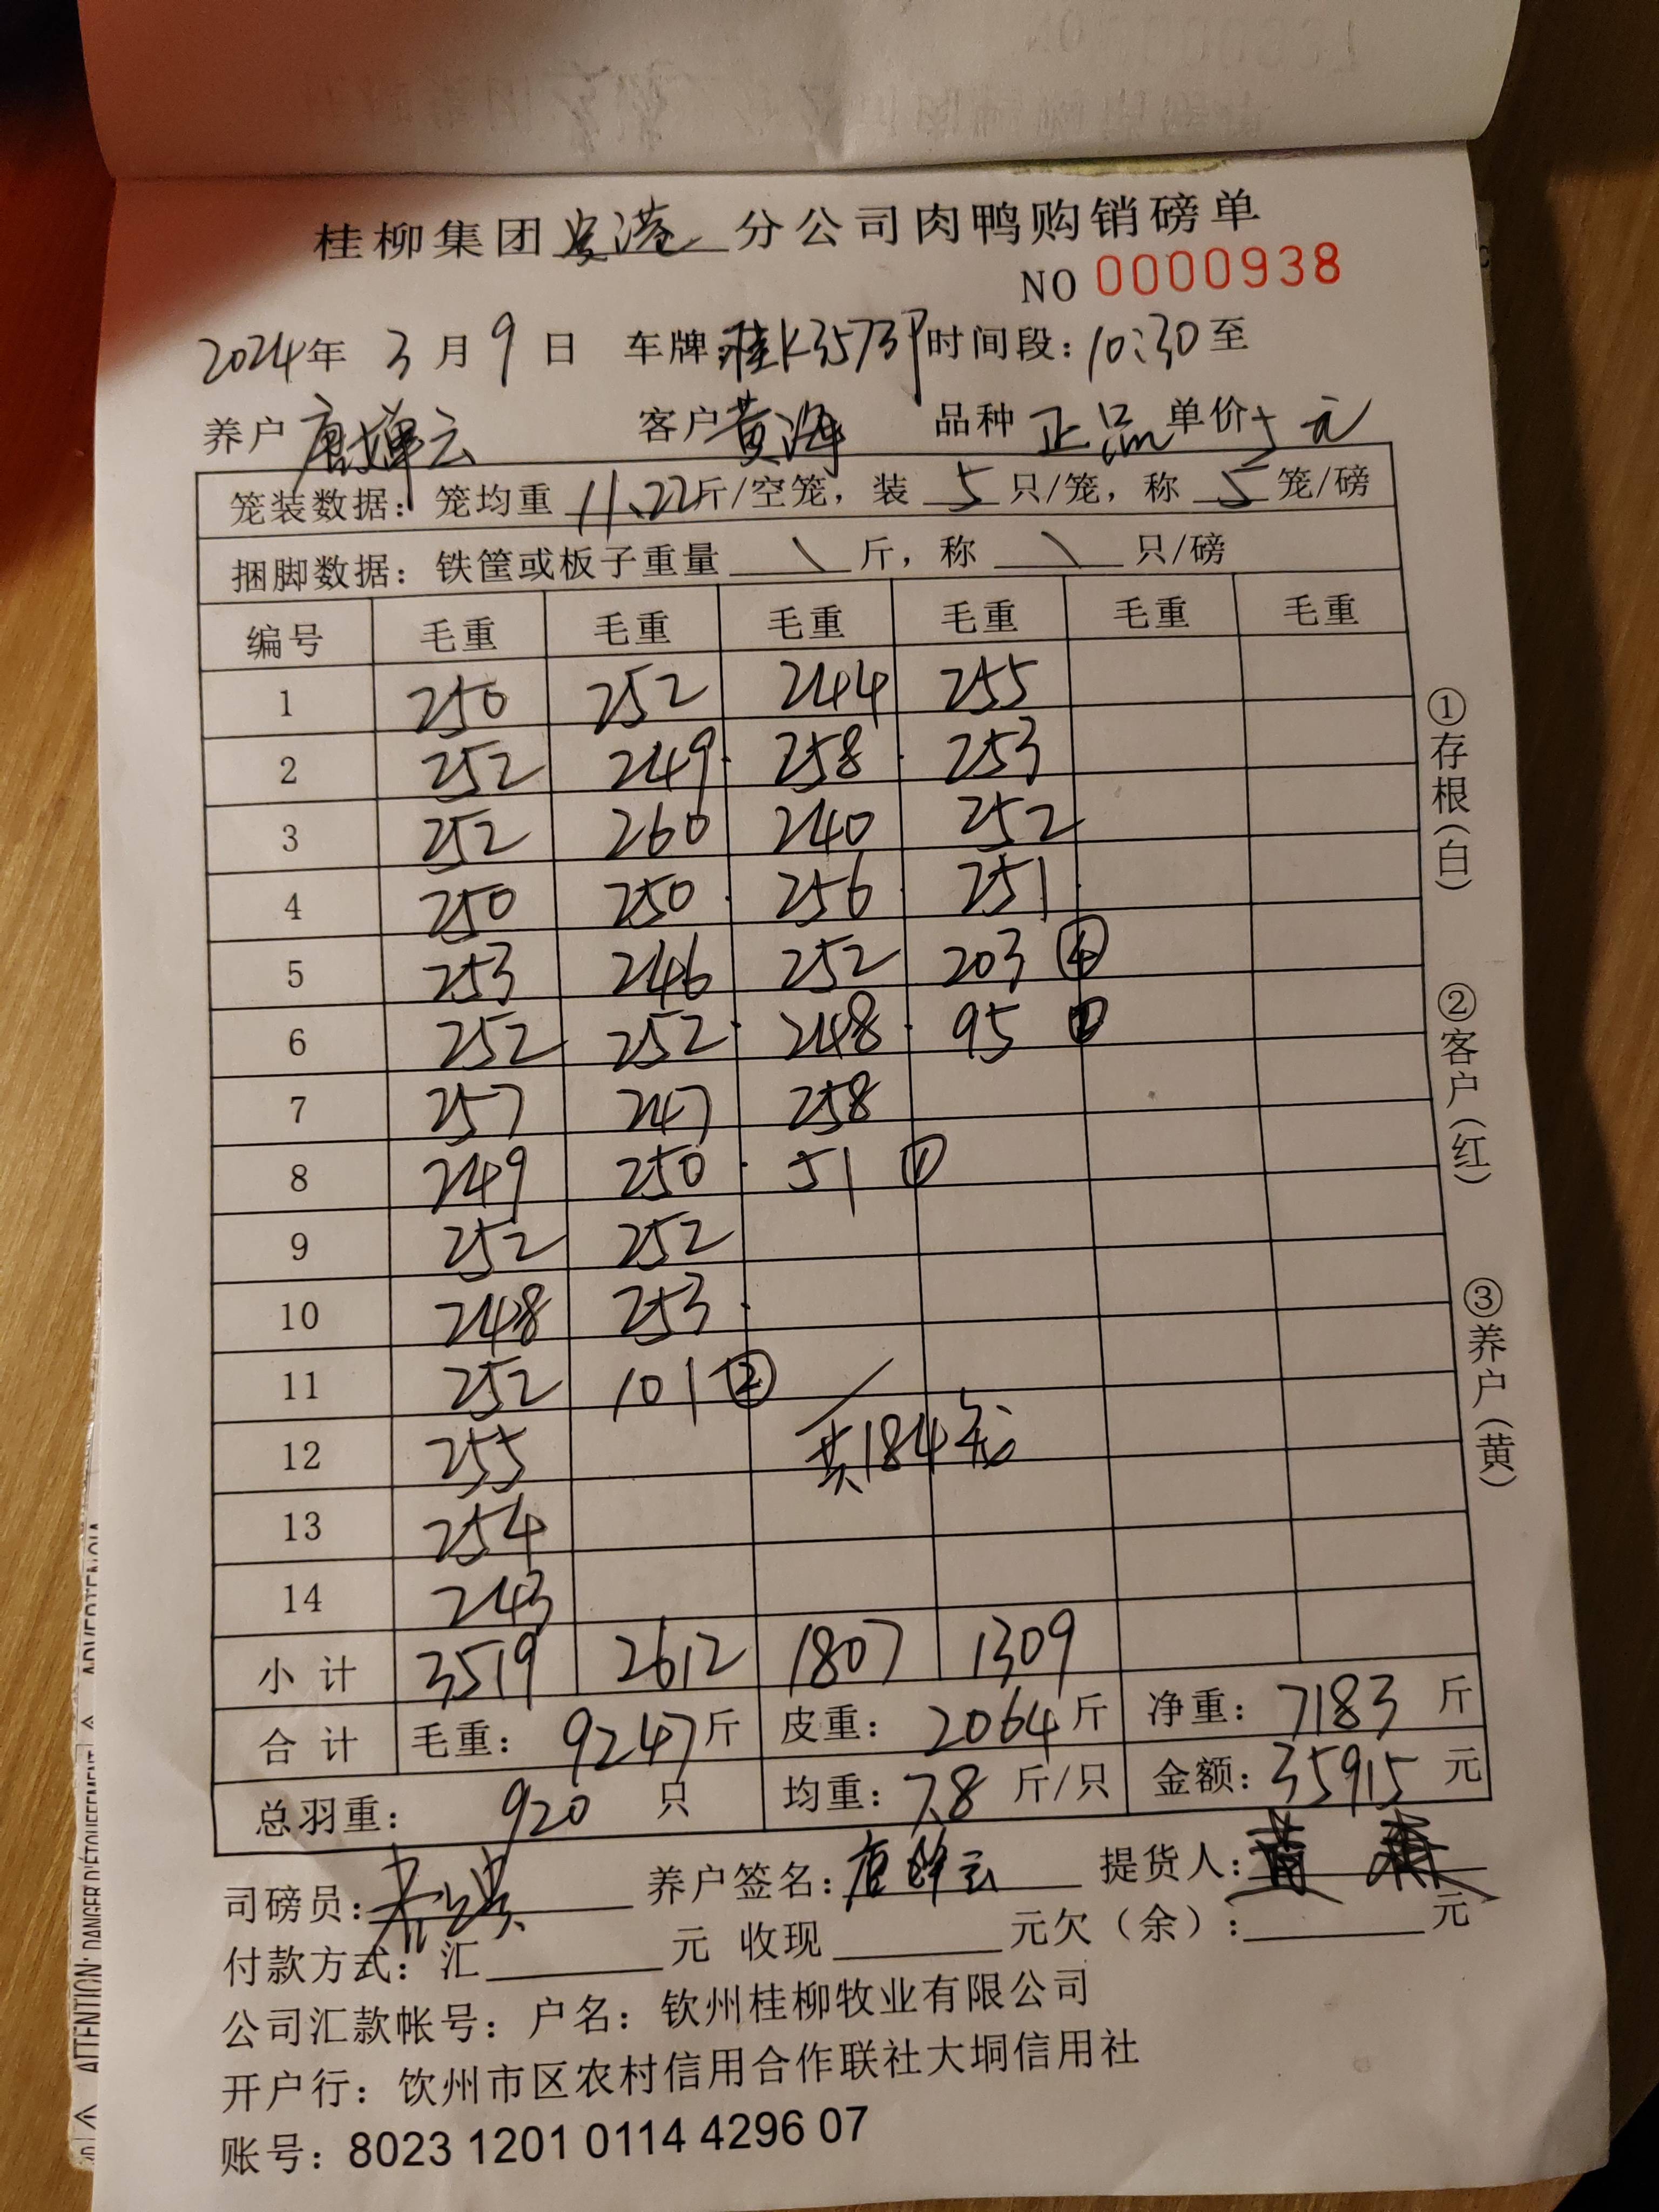 桂柳集团 贵港 分公司肉鸭购销磅单
NO 0000938
2024年 3 月 9 日 车牌 桂K3573P 时间段：10:30 至
养户 唐 云 客户 黄海 品种 正品 单价 5元
笼装数据：笼均重 11.22 斤/空笼，装 5 只/笼，称 5 笼/磅
捆脚数据：铁筐或板子重量 \ 斤，称 \ 只/磅
编号 毛重 毛重 毛重 毛重 毛重 毛重
1 250 252 244 255
2 252 249 258 253
3 252 260 240 252
4 250 250 256 251
5 253 246 252 203 ④
6 252 252 248 95 ②
7 257 247 258
8 249 250 51 ①
9 252 252
10 248 253
11 252 101 ②
12 255 共184笼
13 254
14 243
小计 3519 2612 1807 1309
合计 毛重：9247斤 皮重：2064斤 净重：7183 斤
总羽重：920 只 均重：7.8 斤/只 金额：35915 元
司磅员： 养户签名：唐 云 提货人：黄
付款方式：汇 元 收现 元欠（余）： 元
公司汇款帐号：户名：钦州桂柳牧业有限公司
开户行：钦州市区农村信用合作联社大垌信用社
账号：8023 1201 0114 4296 07
①存根(白)
②客户(红)
③养户(黄)